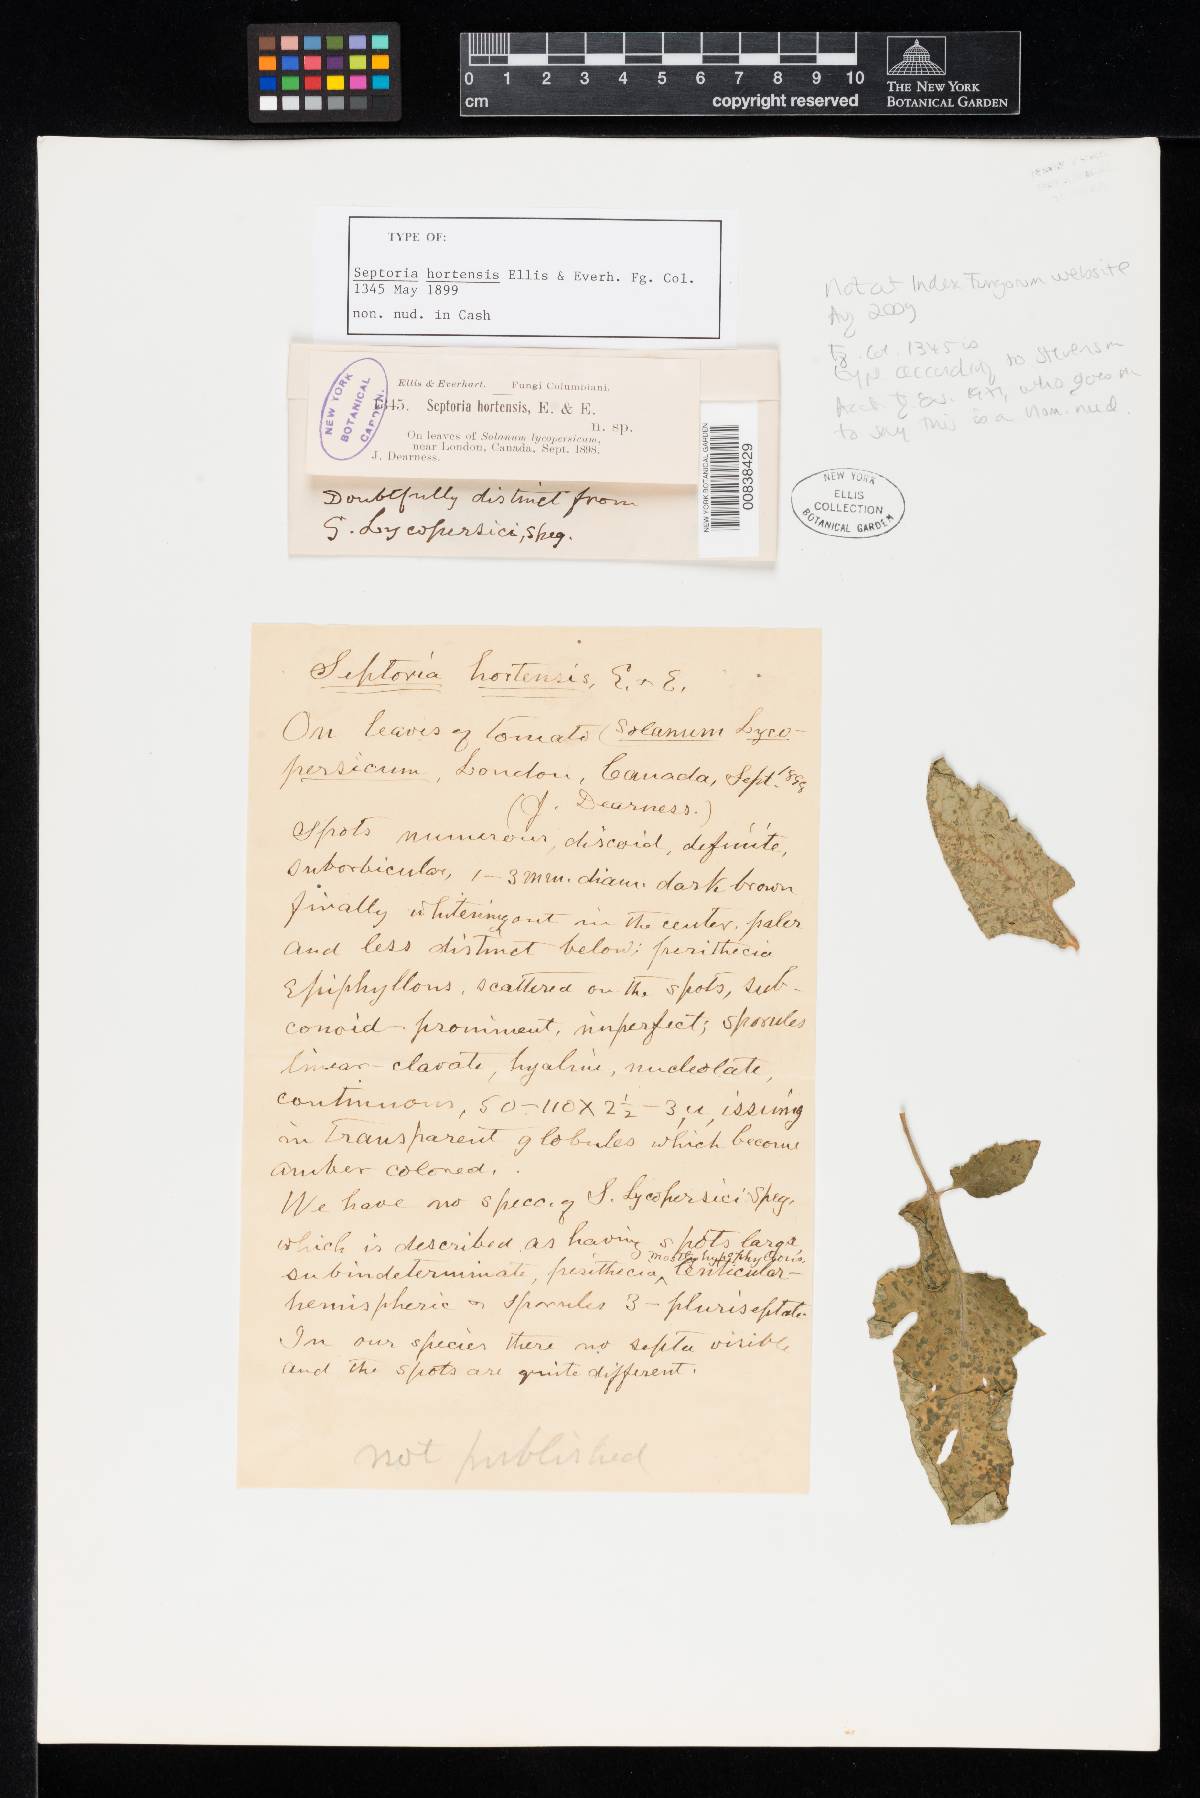 0 1 2 3 4 5 6 7 8 9 10
cm
copyright reserved
THE NEW YORK
BOTANICAL GARDEN
TYPE OF:
Septoria hortensis Ellis & Everh. Fg. Col.
1345 May 1899
non. nud. in Cash
Not at Index Fungorum website
Ag 2009
Fg. Col. 1345 is
type according to Stevenson
who goes on
to say this is a nom. nud.
NEW YORK
BOTANICAL
GARDEN.
Ellis & Everhart. Fungi Columbiani.
1345. Septoria hortensis, E. & E.
n. sp.
On leaves of Solanum lycopersicum,
near London, Canada, Sept. 1898.
J. Dearness.
Doubtfully distinct from
S. Lycopersici, Speg.
NEW YORK BOTANICAL GARDEN
00838429
NEW YORK
ELLIS
COLLECTION
BOTANICAL GARDEN
Septoria hortensis, E. & E.
On leaves of tomato (Solanum Lyco-
persicum, London, Canada, Sept. 1898
(J. Dearness.)
Spots numerous, discoid, definite,
suborbicular, 1-3 mm. diam. dark brown
finally whitening out in the center. paler
and less distinct below; perithecia
Epiphyllous, scattered on the spots, sub-
conoid-prominent, imperfect; sporules
linear-clavate, hyaline, nucleolate,
continuous, 50-110 X 2½-3 µ, issuing
in transparent globules which become
amber colored.
We have no specc. of S. Lycopersici Speg.
which is described as having spots large
mostly hypophyllous.
subindeterminate, perithecia ‸ lenticular-
hemispheric & sporules 3-pluriseptate.
In our species there no septa visible
and the spots are quite different.
not published